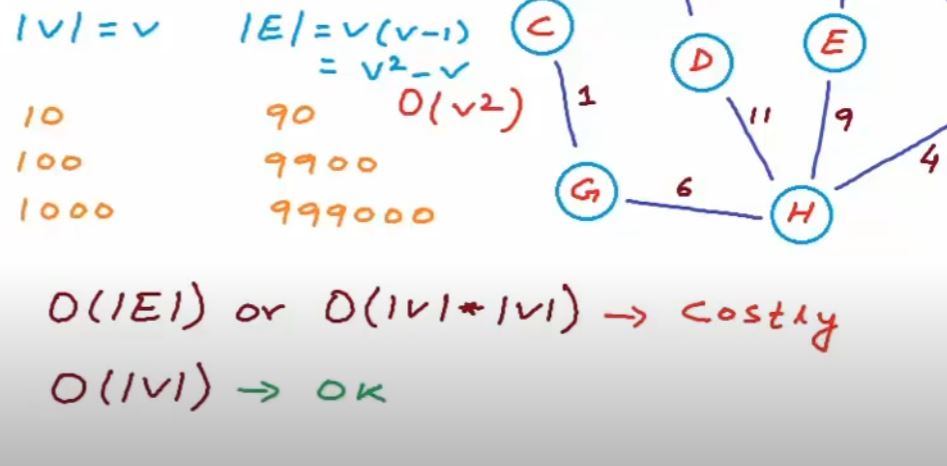 |V| = v |E| = v(v-1)
= v² - v
O(v2)
10 90
100 9900
1000 999000
C
D
E
1
11
9
4
G
6
H
O(|E|) or O(|v|*|v|) → costly
O(|V|) → OK